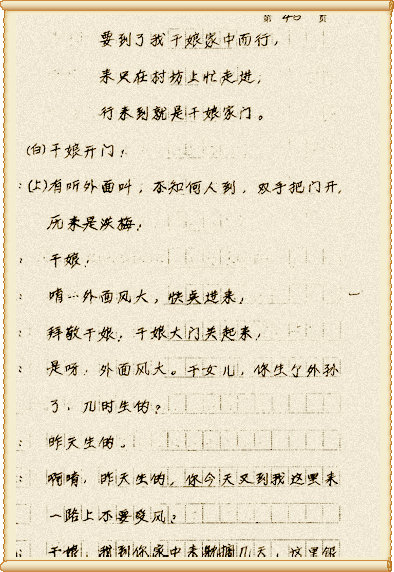 第 40 页
要到了我干娘家中而行，
来只在村坊上忙走进，
行来到就是干娘家门。
(白)干娘开门！
:(上)有听外面叫；不知何人到，双手把门开，
历来是洪梅；
: 干娘！
: 唷…外面风大，快点进来，
: 拜敬干娘，干娘大门关起来，
: 是呀，外面风大。干女儿，你生了外孙
了，几时生的？
: 昨天生的。
: 啊唷，昨天生的，你今天又到我这里来
一路上不要受风？
: 干娘，我到你家中来 几天，这里银